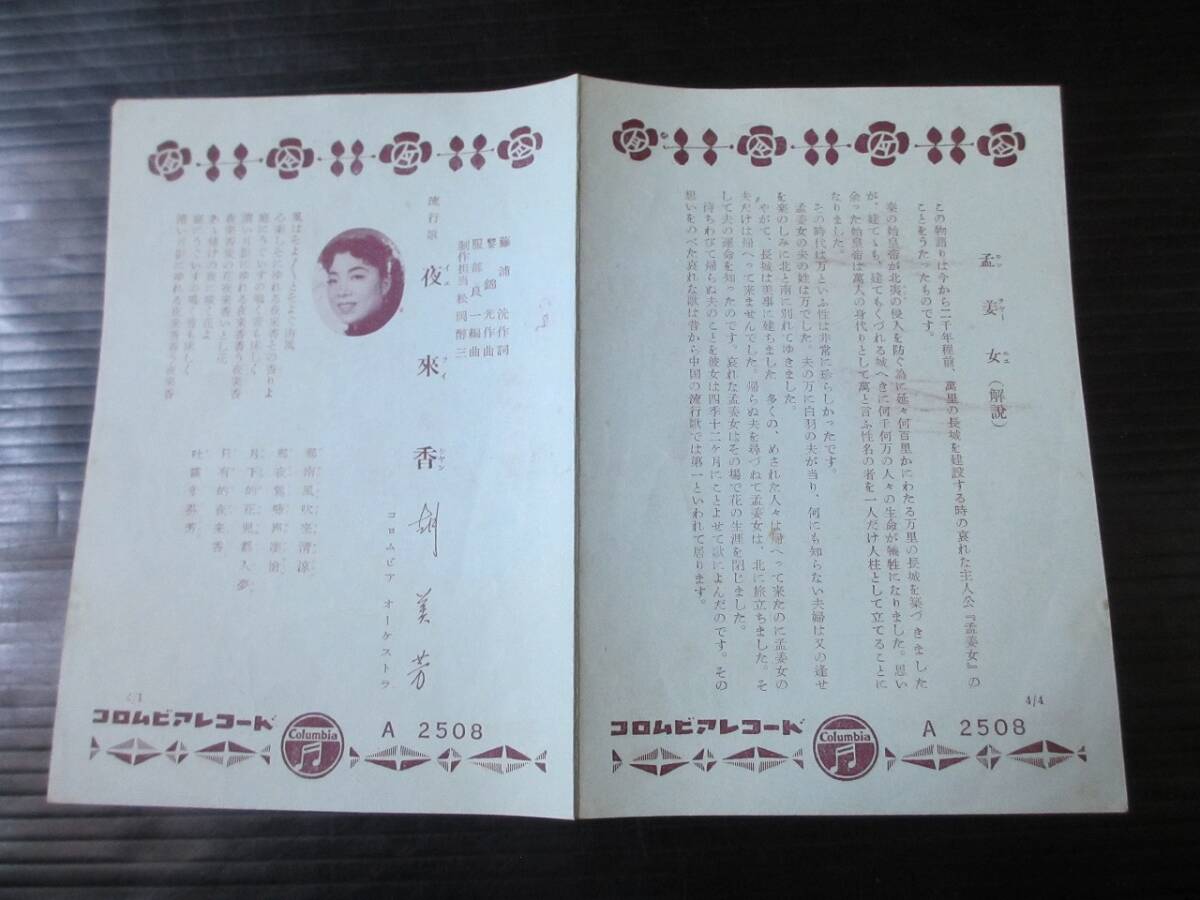 孟姜女(解說)
モン ジャー ニユ
この物語りは今から二千年程前、萬里の長城を建設する時の哀れた主人公『孟姜女』の
ことをうたつたものです。
秦の始皇帝が北夷の侵入を防ぐ為に延々何百里かにわたる万里の長城を築づきました
が、建てゝも、建てもくづれる城へきに何千何万の人々の生命が犠牲になりました。思い
余った始皇帝は萬人の身代りとして萬と言ふ性名の者を一人だけ人柱として立てることに
なりました。
その時代は万といふ性は非常に珍らしかったです。
孟姜女の夫の姓は万でした。夫の万に白羽の夫が当り、何にも知らない夫婦は又の逢せ
を楽のしみに北と南に別れてゆきました。
やがて、長城は美事に建ちました 多くの、めされた人々は帰へって来たのに孟姜女の
夫だけは帰へって来ませんでした。帰らぬ夫を尋づねて孟姜女は、北に旅立ちました。そ
して夫の運命を知ったのです。哀れな孟姜女はその場で花の生涯を閉じました。
待ちわびて帰らぬ夫のことを彼女は四季十二ケ月にことよせて歌によんだのです。その
想いをのべた哀れな歌は昔から中国の流行歌では第一といわれて居ります。
4/4
コロムビアレコード
Columbia
A 2508
藤浦洸作詞
黎錦光作曲
服部良一編曲
制作担当松岡醇三
流行歌
夜來香
イエ ライ シヤン
胡美芳
コロムビア オーケストラ
那南風吹來清涼
那夜鶯啼声凄愴
月下的花児都入夢
只有的夜来香
吐露着芬芳
コロムビアレコード
Columbia
A 2508